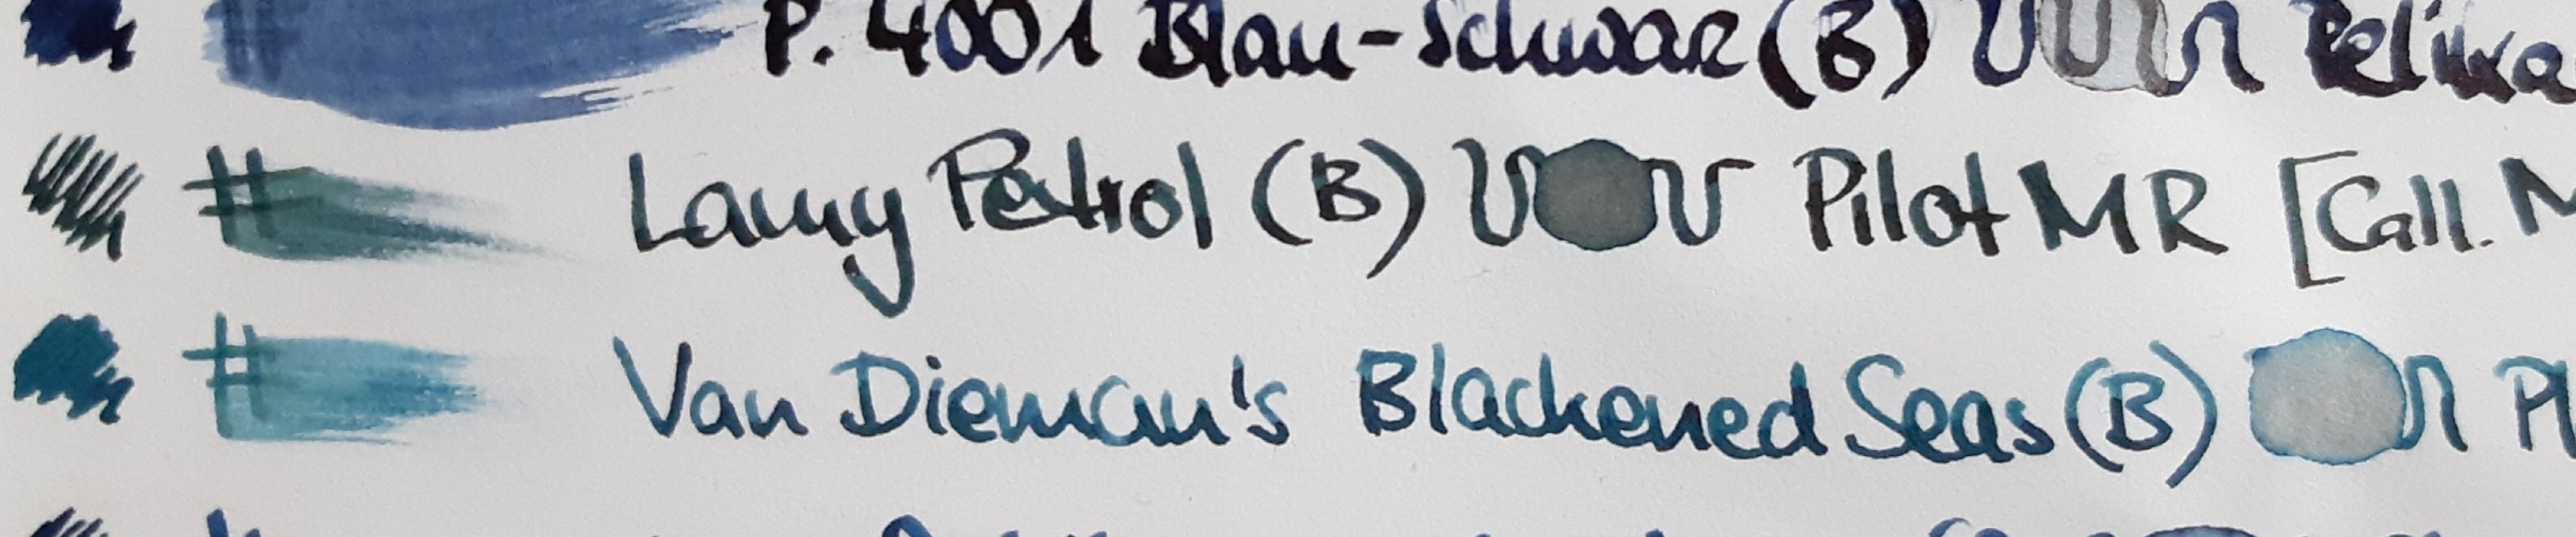 P. 4001 Blau-Schwarz (B) Pelika
Lamy Petrol (B) Pilot MR [Call. M
Van Dieman's Blackened Seas (B) Pl